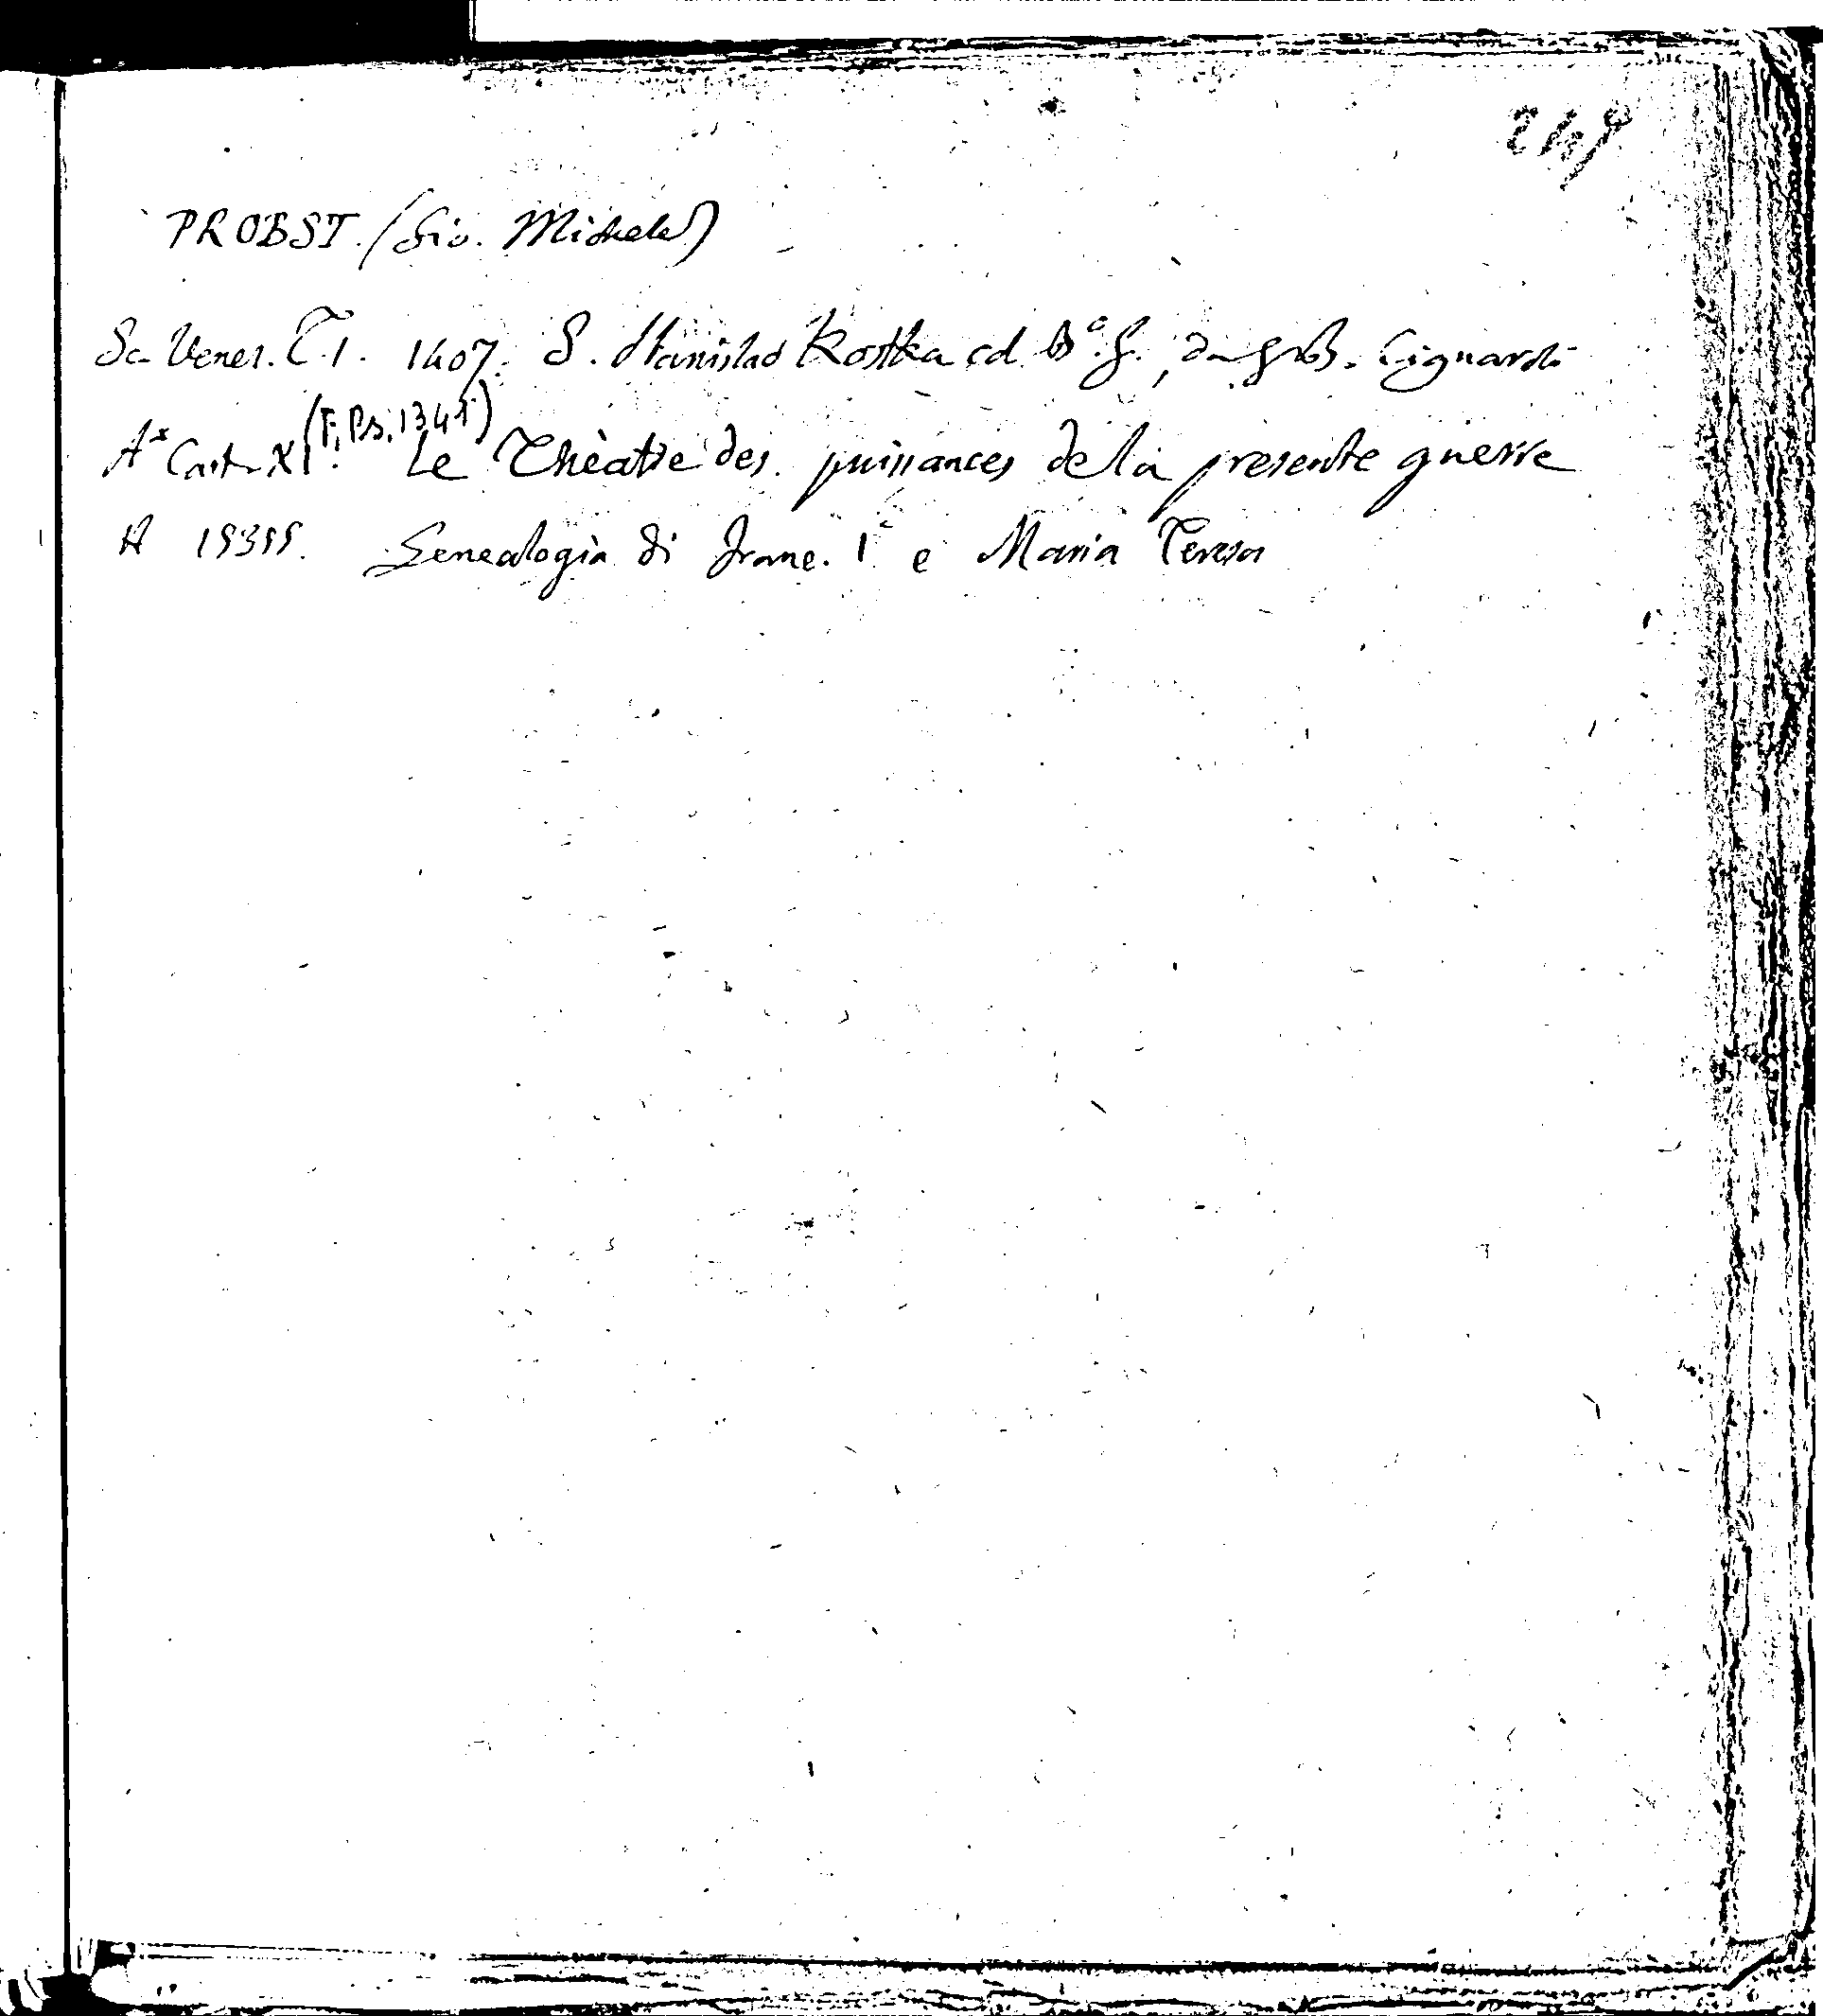 PROBST. (Gio. Michele)
Sc. Venez. T. 1. 1407. S. Stanislao Kostka col Bº. G., da Gius. Cignardi
(F. Ps. 1341)
Aˣ Cart. XI. Le Thèatre des puissances de la presente guerre
A 15355. Genealogia di Franc. I e Maria Teresa